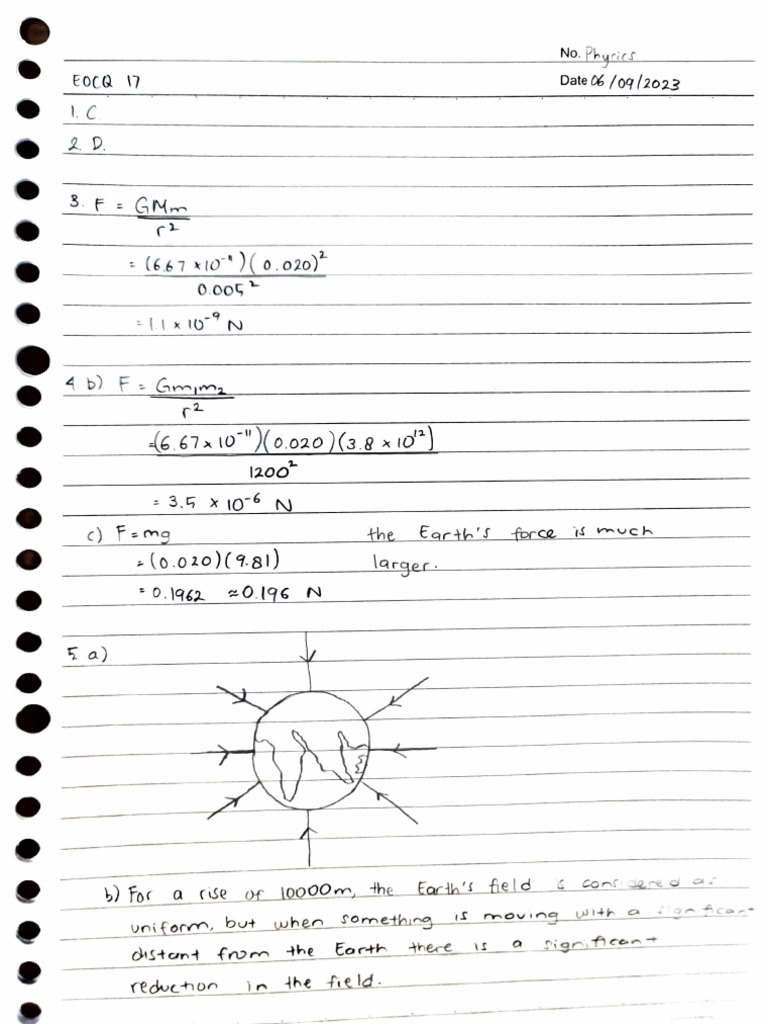 No. Physics
EOCQ 17
Date 06/09/2023
1. C
2. D.
3. F = GMm
r²
= (6.67 × 10⁻¹¹)(0.020)²
0.005²
= 1.1 × 10⁻⁹ N
4 b) F = Gm₁m₂
r²
= (6.67 × 10⁻¹¹)(0.020)(3.8 × 10¹²)
1200²
= 3.5 × 10⁻⁶ N
c) F = mg the Earth's force is much
= (0.020)(9.81) larger.
= 0.1962 ≈ 0.196 N
5. a)
b) For a rise of 10000m, the Earth's field is considered as
uniform, but when something is moving with a significant
distant from the Earth there is a significant
reduction in the field.